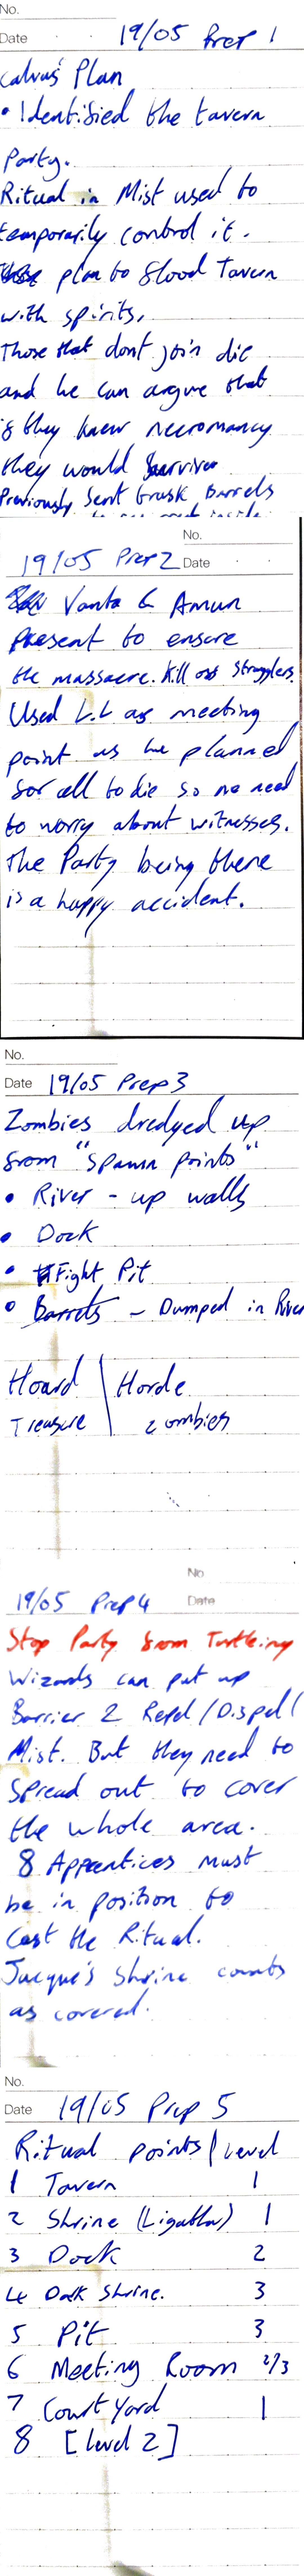 No.
Date 19/05 Prep 1
Calvus' Plan
• Identified the tavern
Party.
Ritual in Mist used to
temporarily control it.
plan to flood Tavern
with spirits.
Those that dont join die
and he can argue that
if they knew necromancy
they would survive
Previously sent Grusk Barrels
No.
19/05 Prep 2 Date
Vanta & Amun
present to ensure
the massacre. Kill off stragglers.
Used L.L as meeting
point as he planned
for all to die so no need
to worry about witnesses.
The Party being there
is a happy accident.
No.
Date 19/05 Prep 3
Zombies dredged up
from "Spawn points"
• River - up walls
• Dock
• Fight Pit
• Barrels - Dumped in River
Hoard | Horde
Treasure zombies
No
19/05 Prep 4 Date
Stop Party from Turtleing
Wizards can put up
Barrier 2 Repel/Dispell
Mist. But they need to
spread out to cover
the whole area.
8 Apprentices must
be in position to
Cast the Ritual.
Jacque's Shrine counts
as covered.
No.
Date 19/05 Prep 5
Ritual points/Level
1 Tavern 1
2 Shrine 1
3 Dock 2
4 Dock Shrine. 3
5 Pit 3
6 Meeting Room 2/3
7 Court Yard 1
8 [Level 2]